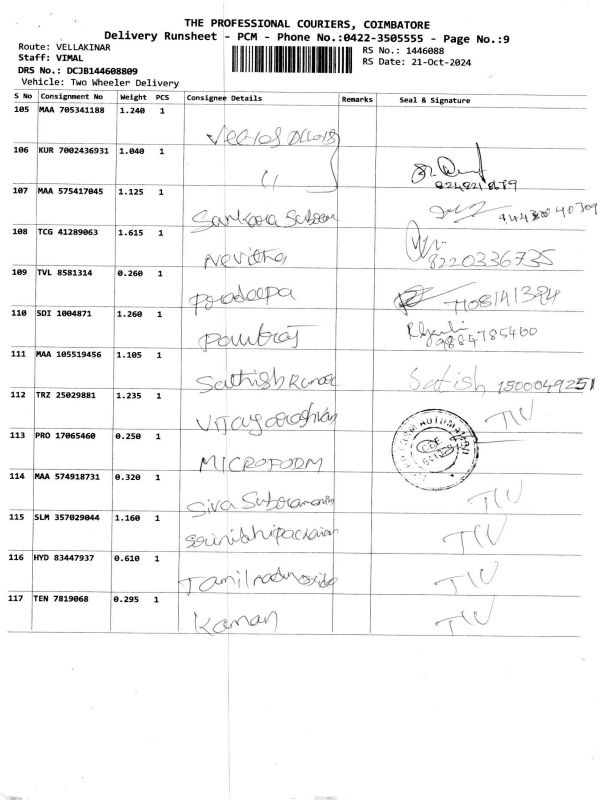 THE PROFESSIONAL COURIERS, COIMBATORE
Delivery Runsheet - PCM - Phone No.:0422-3505555 - Page No.:9
Route: VELLAKINAR
RS No.: 1446088
Staff: VIMAL
RS Date: 21-Oct-2024
DRS No.: DCJB144608809
Vehicle: Two Wheeler Delivery
S No Consignment No Weight PCS Consignee Details Remarks Seal & Signature
105 MAA 705341188 1.240 1
106 KUR 7002436931 1.040 1 "
107 MAA 575417045 1.125 1 Sankara
108 TCG 41289063 1.615 1 Nevitha 8220336735
109 TVL 8581314 0.260 1 Pradeepa
110 SDI 1004871 1.260 1 9884785460
111 MAA 105519456 1.105 1 Sathish Kumar Satish 1500049251
112 TRZ 25029881 1.235 1
113 PRO 17065460 0.250 1 MICROFORM
114 MAA 574918731 0.320 1 Siva
115 SLM 357029044 1.160 1
116 HYD 83447937 0.610 1
117 TEN 7819068 0.295 1 Kannan